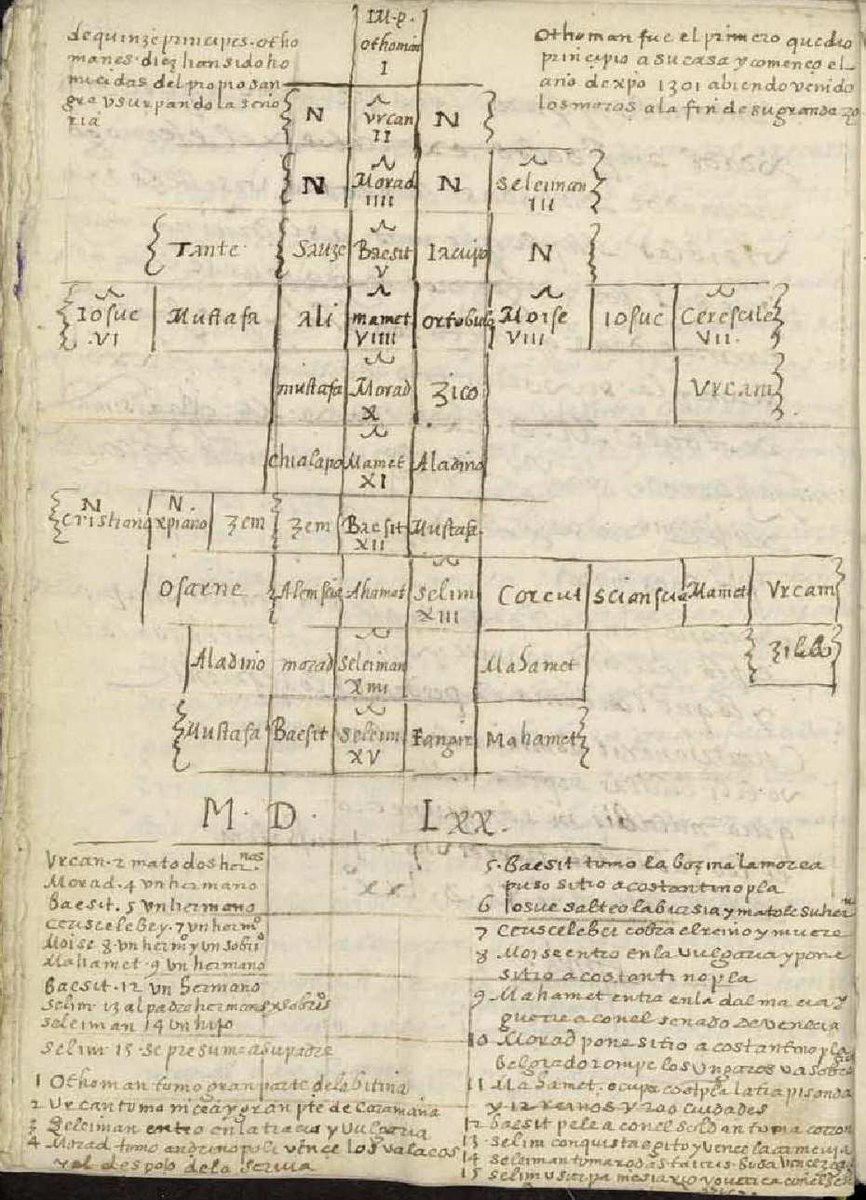 de quinze principes otho
manes diez han sido ho
micidas del propio san
gre vsurpando la seño
ria
IM.P.
othoman
I
Othoman fue el primero que dio
principio a su casa y començo el
año de xpo 1301 abiendo venido
los moros a la fin de su grandezo
N vrcan N
II
N Morad N Seleiman
IIII III
Tante Sauze Baesit Iacupo N
V
Iosue Mustafa Ali mamet ortobul Moise Iosue Cerescile
.VI VIIII VIII VII.
mustafa Morad Zico Vrcam
X
chialapo Mamet Aladino
XI
N N
Cristiano xpiano Zem Zem Baesit Mustafa
XII
Osarne Alemscia Ahamat Selim Corcut scianscia Mamet Vrcam
XIII
Aladino morad Seleiman Mahamet
XIIII
Mustafa Baesit Selim Mahamet
XV
M. D. Lxx.
Vrcan. 2 mato dos her.nos
Morad. 4 vn hermano
Baesit. 5 vn hermano
Ceruscelebey. 7 vn hermo
Moise 8 vn hermo y vn sobrio
Mahamet. 9 vn hermano
Baesit. 12 vn hermano
Selim 13 al padre hermanos
Seleiman 14 vn hijo
Selim 15. se presume a su padre
1 Othoman tomo gran parte de la bitinia
2 Vrcan tomo nicea y gran pte de Caramania
3 Seleiman entro en la tracia y Vulgaria
4 Morad tomo andrinopoli vence los valacos
y al despoto de la Servia
5. Baesit tomo la bozina la morea
puso sitio a costantinopla
6 Iosue salteo la bursia y matole su her
7 Ceruscelebei cobra el reino y muere
8 Moise entro en la vulgaria y pone
sitio a costantinopla
9 Mahamet entra en la dalmacia y
guerrea con el senado de venecia
10 Morad pone sitio a costantinopla
Belgrado rompe los vngaros
11 Mahamet. ocupa costpla la trapisonda
y 12 reinos y 200 ciudades
12 baesit pelea con el soldan toma
13. Selim conquista egito y vence la armenia
14 Seleiman toma rodas tauris. Buda
15 Selim vsurpa